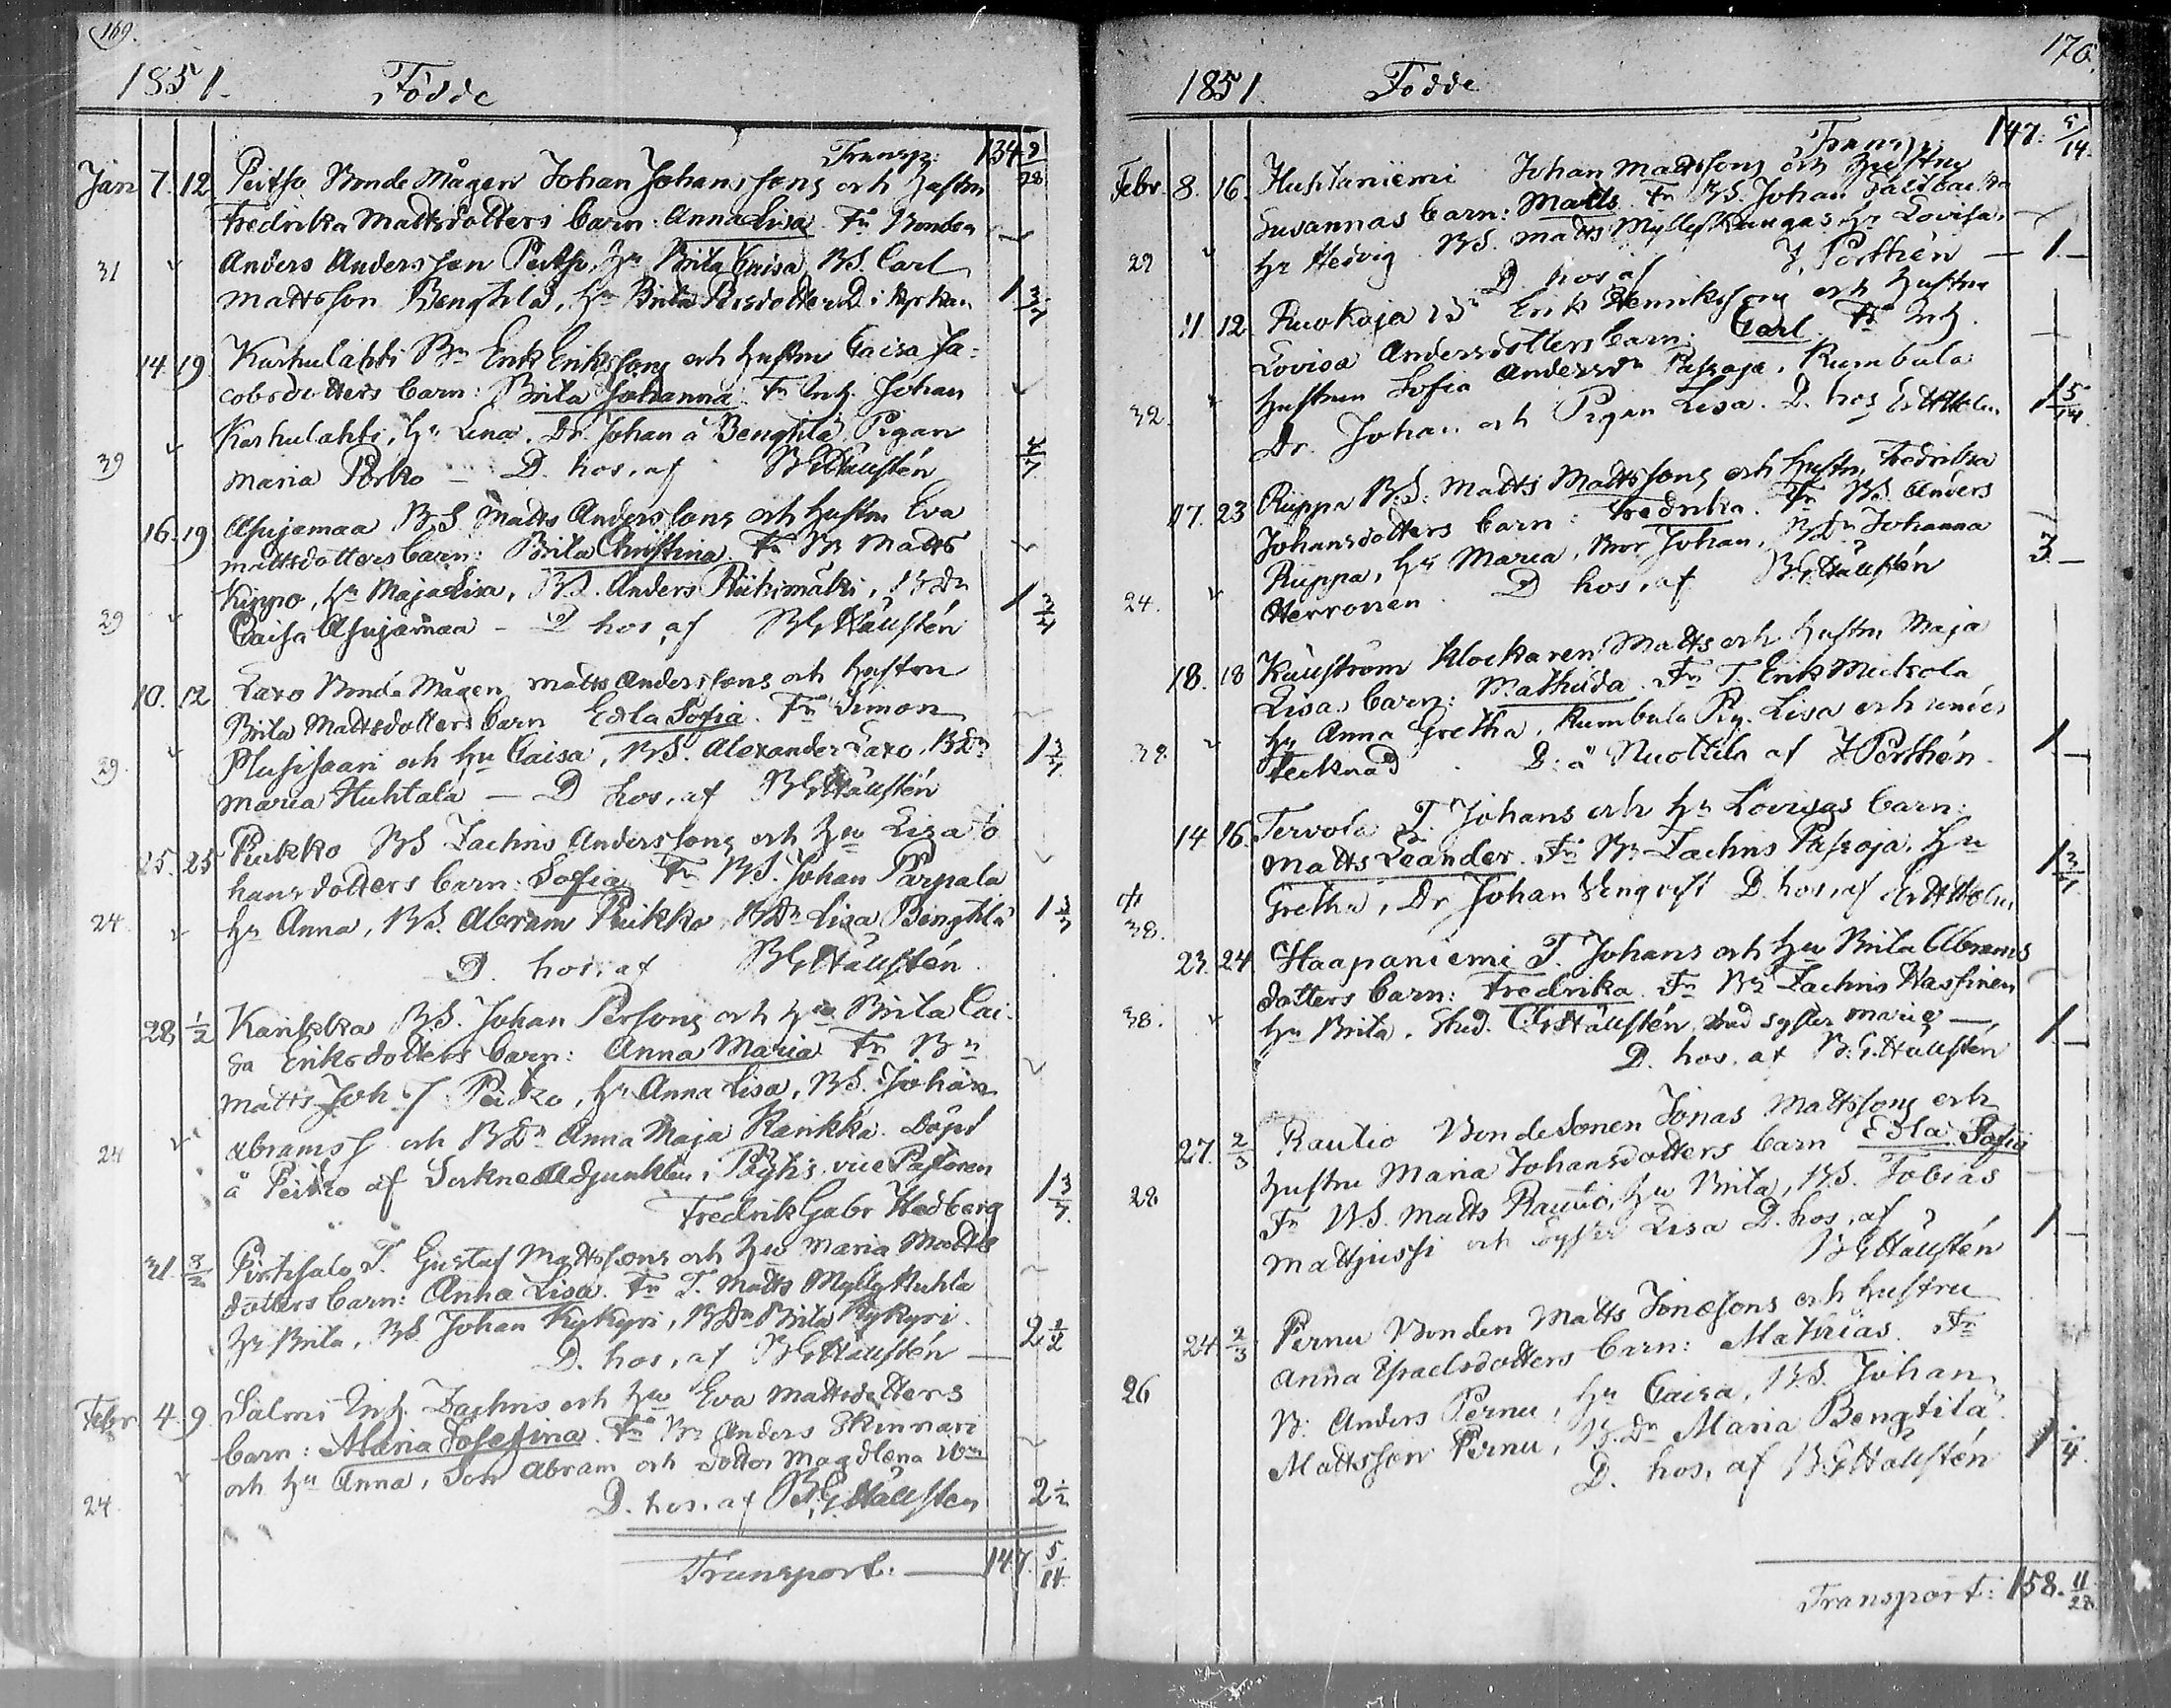 169.
1851. Födde
Transp: 134 9/28
Jan 7. 12 Peitso Bonde Mågen Johan Johanssons och hustru
Fredrika Mattsdotters barn: Anna Lisa. Fr Bonden
31 Anders Andersson Peitso, hu Brita Caisa, BS. Carl
Mattsson Bengtilä, hu Brita D. i kyrkan 1 3/7
14. 19 Karhulahti Bn Erik Erikssons och hustru Caisa Ja-
cobsdotters barn: Brita Johanna. Fr Inh. Johan
Karhulahti, hu Lena, Dr. Johan å Bengtilä, Pigan
39 Maria Porko - D. hos, af BGHällstén 4/7
16. 19 Asujamaa BS Matts Anderssons och hustru Eva
Mattsdotters barn: Brita Christina. Fr Bn Matts
Kippo, hu Maja Lisa, BS. Anders Riihimäki, BDr
29 Caisa Asujamaa - D hos, af BGHällstén 1 3/7
10. 12 Laxo Bonde Mågen Matts Anderssons och hustru
Brita Mattsdotters barn Edla Sofia. Fr Simon
29. och hu Caisa, BS. Alexander Laxo, BDr
Maria Huhtala - D hos, af BGHällstén 1 3/7
25. 25 Peikko BS Zachris Anderssons och hu Lisa Jo
hansdotters barn: Sofia. Fr BS. Johan Parpala
24. hu Anna, BS. Abram Peikko, BDr Lisa Bengtilä 1 3/7
D. hos, af BGHällstén
28. 1/2 Karikka BS. Johan Perssons och hu Brita Cai-
sa Eriksdotters barn: Anna Maria Fr Bn
Matts Joh. S. Peikko, hu Anna Lisa, BS. Johan
24 Abramss och BDr Anna Maja Karikka. Döpt
å Peikko af Sockne Adjunkten, Pyhäj. vice Pastoren
Fredrik Gabr Hedberg 1 3/7.
31 3/2 Pirtisalo T. Gustaf Mattssons och hu Maria Matts
dotters barn: Anna Lisa. Fr T. Matts Myllykuhta
hu Brita, BS Johan Kykyri, BDr Brita Kykyri.
D. hos, af BGHällstén — 2 1/2
Febr 4. 9. Salmi Inh. Zachris och hu Eva Mattsdotters
barn: Maria Josefina. Fr Bn Anders Skinnari
och hu Anna, Son Abram och dotter Magdlena
24. D. hos, af BGHällsten 2 1/2
Transport: — 147. 5/14.
170.
1851. Födde
Transp: 147. 5/14.
Febr. 8. 16. Huhtaniemi Johan Mattssons och hustru
Susannas barn: Matts. Fr BS. Johan
29 hu Hedvig. BS. Matts Myllykangas hu Lovisa.
D. hos af J. Porthén — 1 —
11. 12. Ruokoja Bn Erik Henrikssons och hustru
Lovisa Andersdotters barn: Carl. Fr Inh.
32. hustrun Sofia Andersdr Passoja, Rumbula
Dr. Johan och Pigan Lisa. D. hos 1 5/14.
17. 23 Riippa B.S. Matts Mattssons och hustru Fredrika
Johansdotters barn: Fredrika. Fr BS. Anders
Riippa, hu Maria, Bror Johan, BDr Johanna
24. Herronen. D hos, af BGHällstén 3. —
18. 18 Källström Klockaren Matts och hustru Maja
Lisas barn: Mathilda. Fr T. Erik Mickola
38 hu Anna Gretha, Rumbula Pig. Lisa och under
tecknad. D. å Nuottila af J Porthén. 1. —
14. 16. Tervola T. Johans och hu Lovisas barn:
Matts Leander. Fr Bn Zachris Passoja, hu
38. Gretha, Dr Johan D. hos, af 1 3/7.
23. 24 Haapaniemi T. Johans och hu Brita Abrams
dotters barn: Fredrika. Fr Bn Zachris Hassinen
38. hu Brita. Stud. CGHällstén, dess syster Marie —
D. hos, af B.G.Hällstén 1 —
27. 2/3 Rautio Bondesonen Jonas Mattssons och
hustru Maria Johansdotters barn Edla Sofia
28 Fr BS. Matts Rautio, hu Brita, BS. Tobias
Mattjussi och syster Lisa D. hos, af
BGHällstén 1 —
24. 2/3 Pernu Bonden Matts Jonæsons och hustru
Anna Israelsdotters barn: Mathias. Fr
26 B: Anders Pernu, hu Caisa, BS. Johan
Mattsson Pernu, B. Dr Maria Bengtilä.
D. hos, af BGHällstén 1 1/4.
Transport: 158. 11/28.